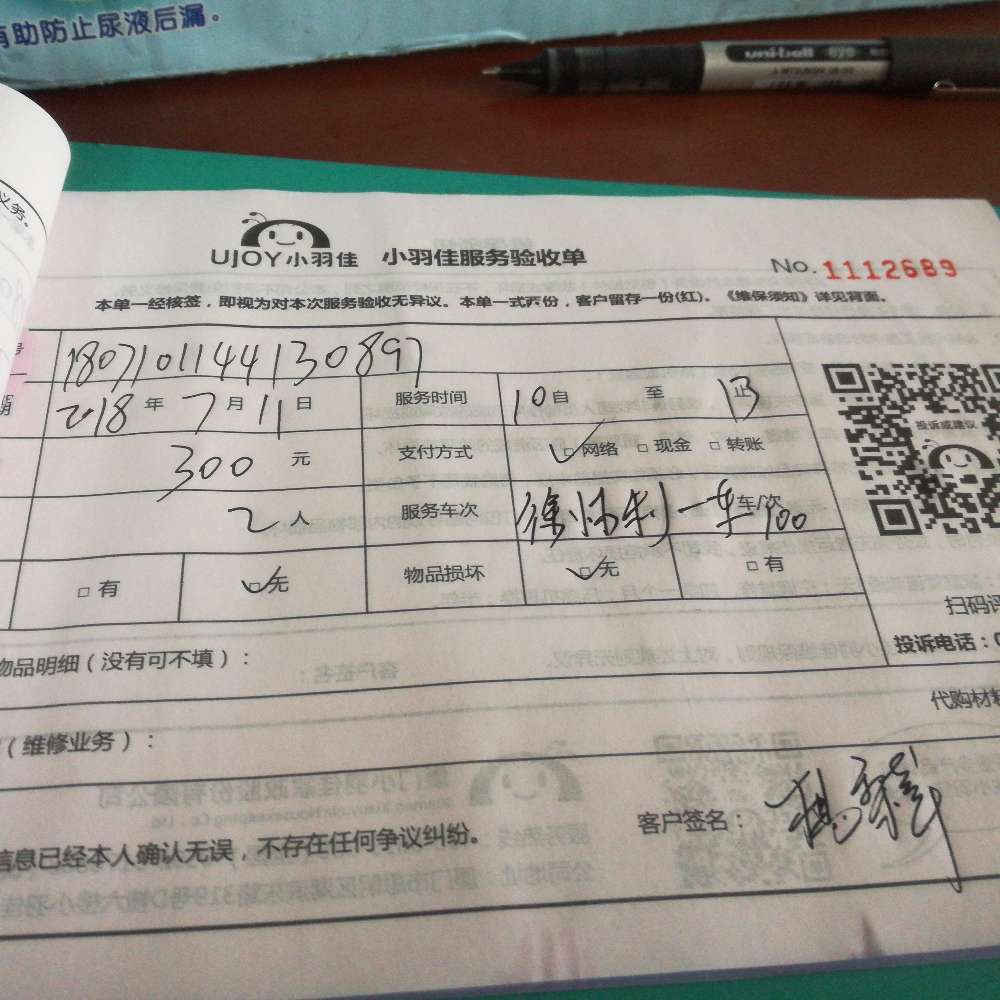 有助防止尿液后漏。
义务。
UJOY小羽佳 小羽佳服务验收单
No. 1112689
本单一经核签，即视为对本次服务验收无异议。本单一式两份，客户留存一份(红)。《维保须知》详见背面。
号 180710114413089
期 2018 年 7 月 11 日 服务时间 10 自 至 13 止
300 元 支付方式 □网络 □现金 □转账
2 人 服务车次 一车 车/次 100
□ 有 □无 物品损坏 □无 □ 有
投诉或建议
扫码评
投诉电话：0
物品明细（没有可不填）：
代购材料
（维修业务）：
信息已经本人确认无误，不存在任何争议纠纷。 客户签名：